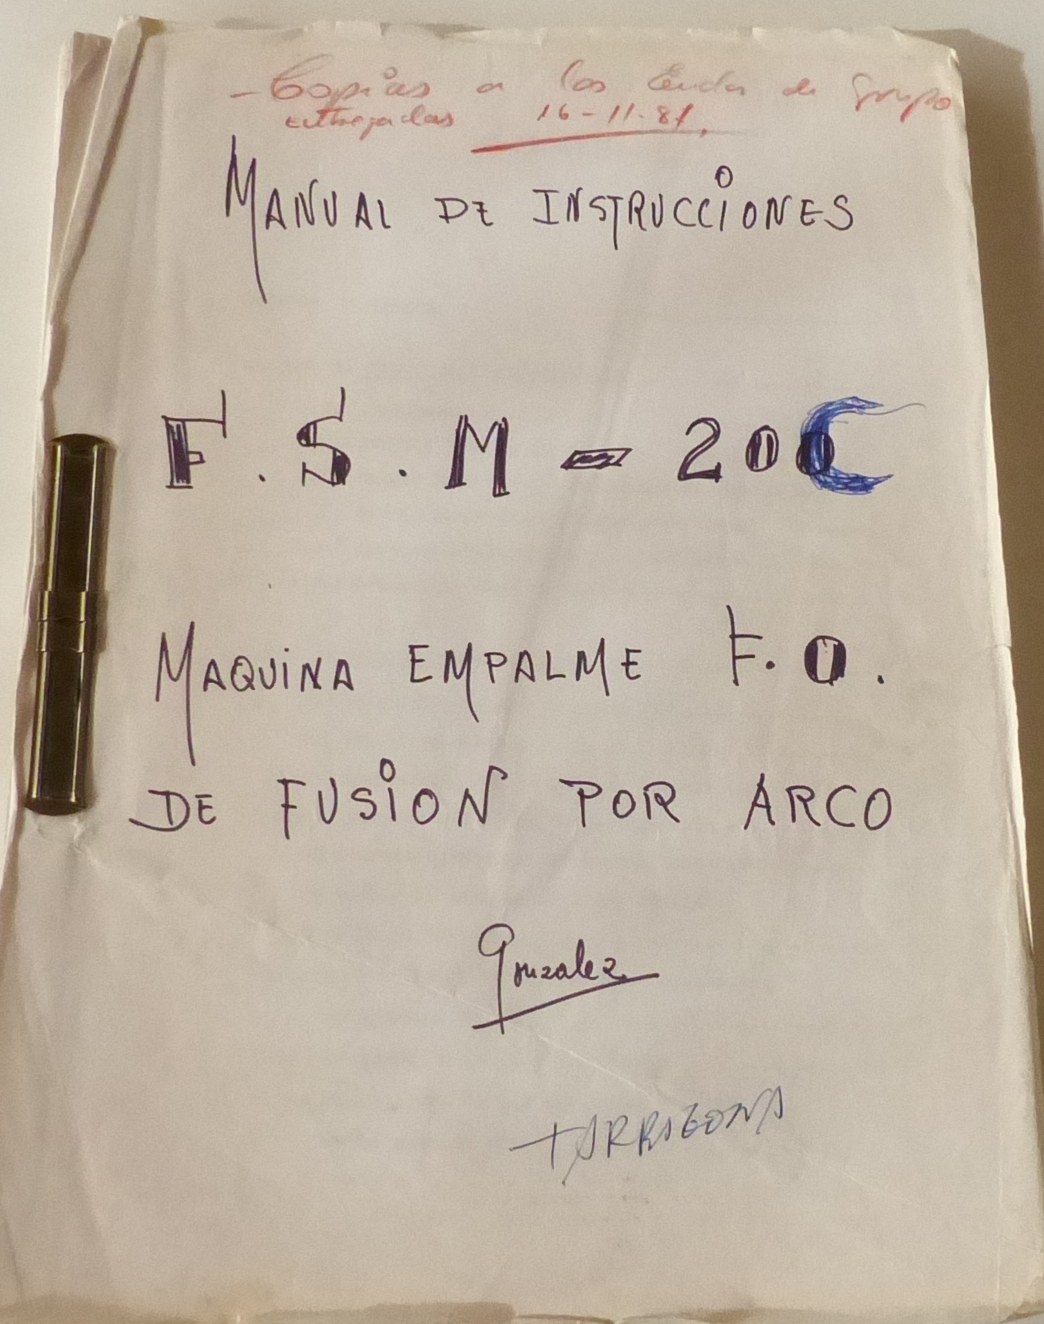 - Copias a los de Grupo
entregadas 16-11-87.
MANUAL DE INSTRUCCIONES
F.S.M - 20C
MAQUINA EMPALME F.O.
DE FUSION POR ARCO
Gonzalez
TARRAGONA